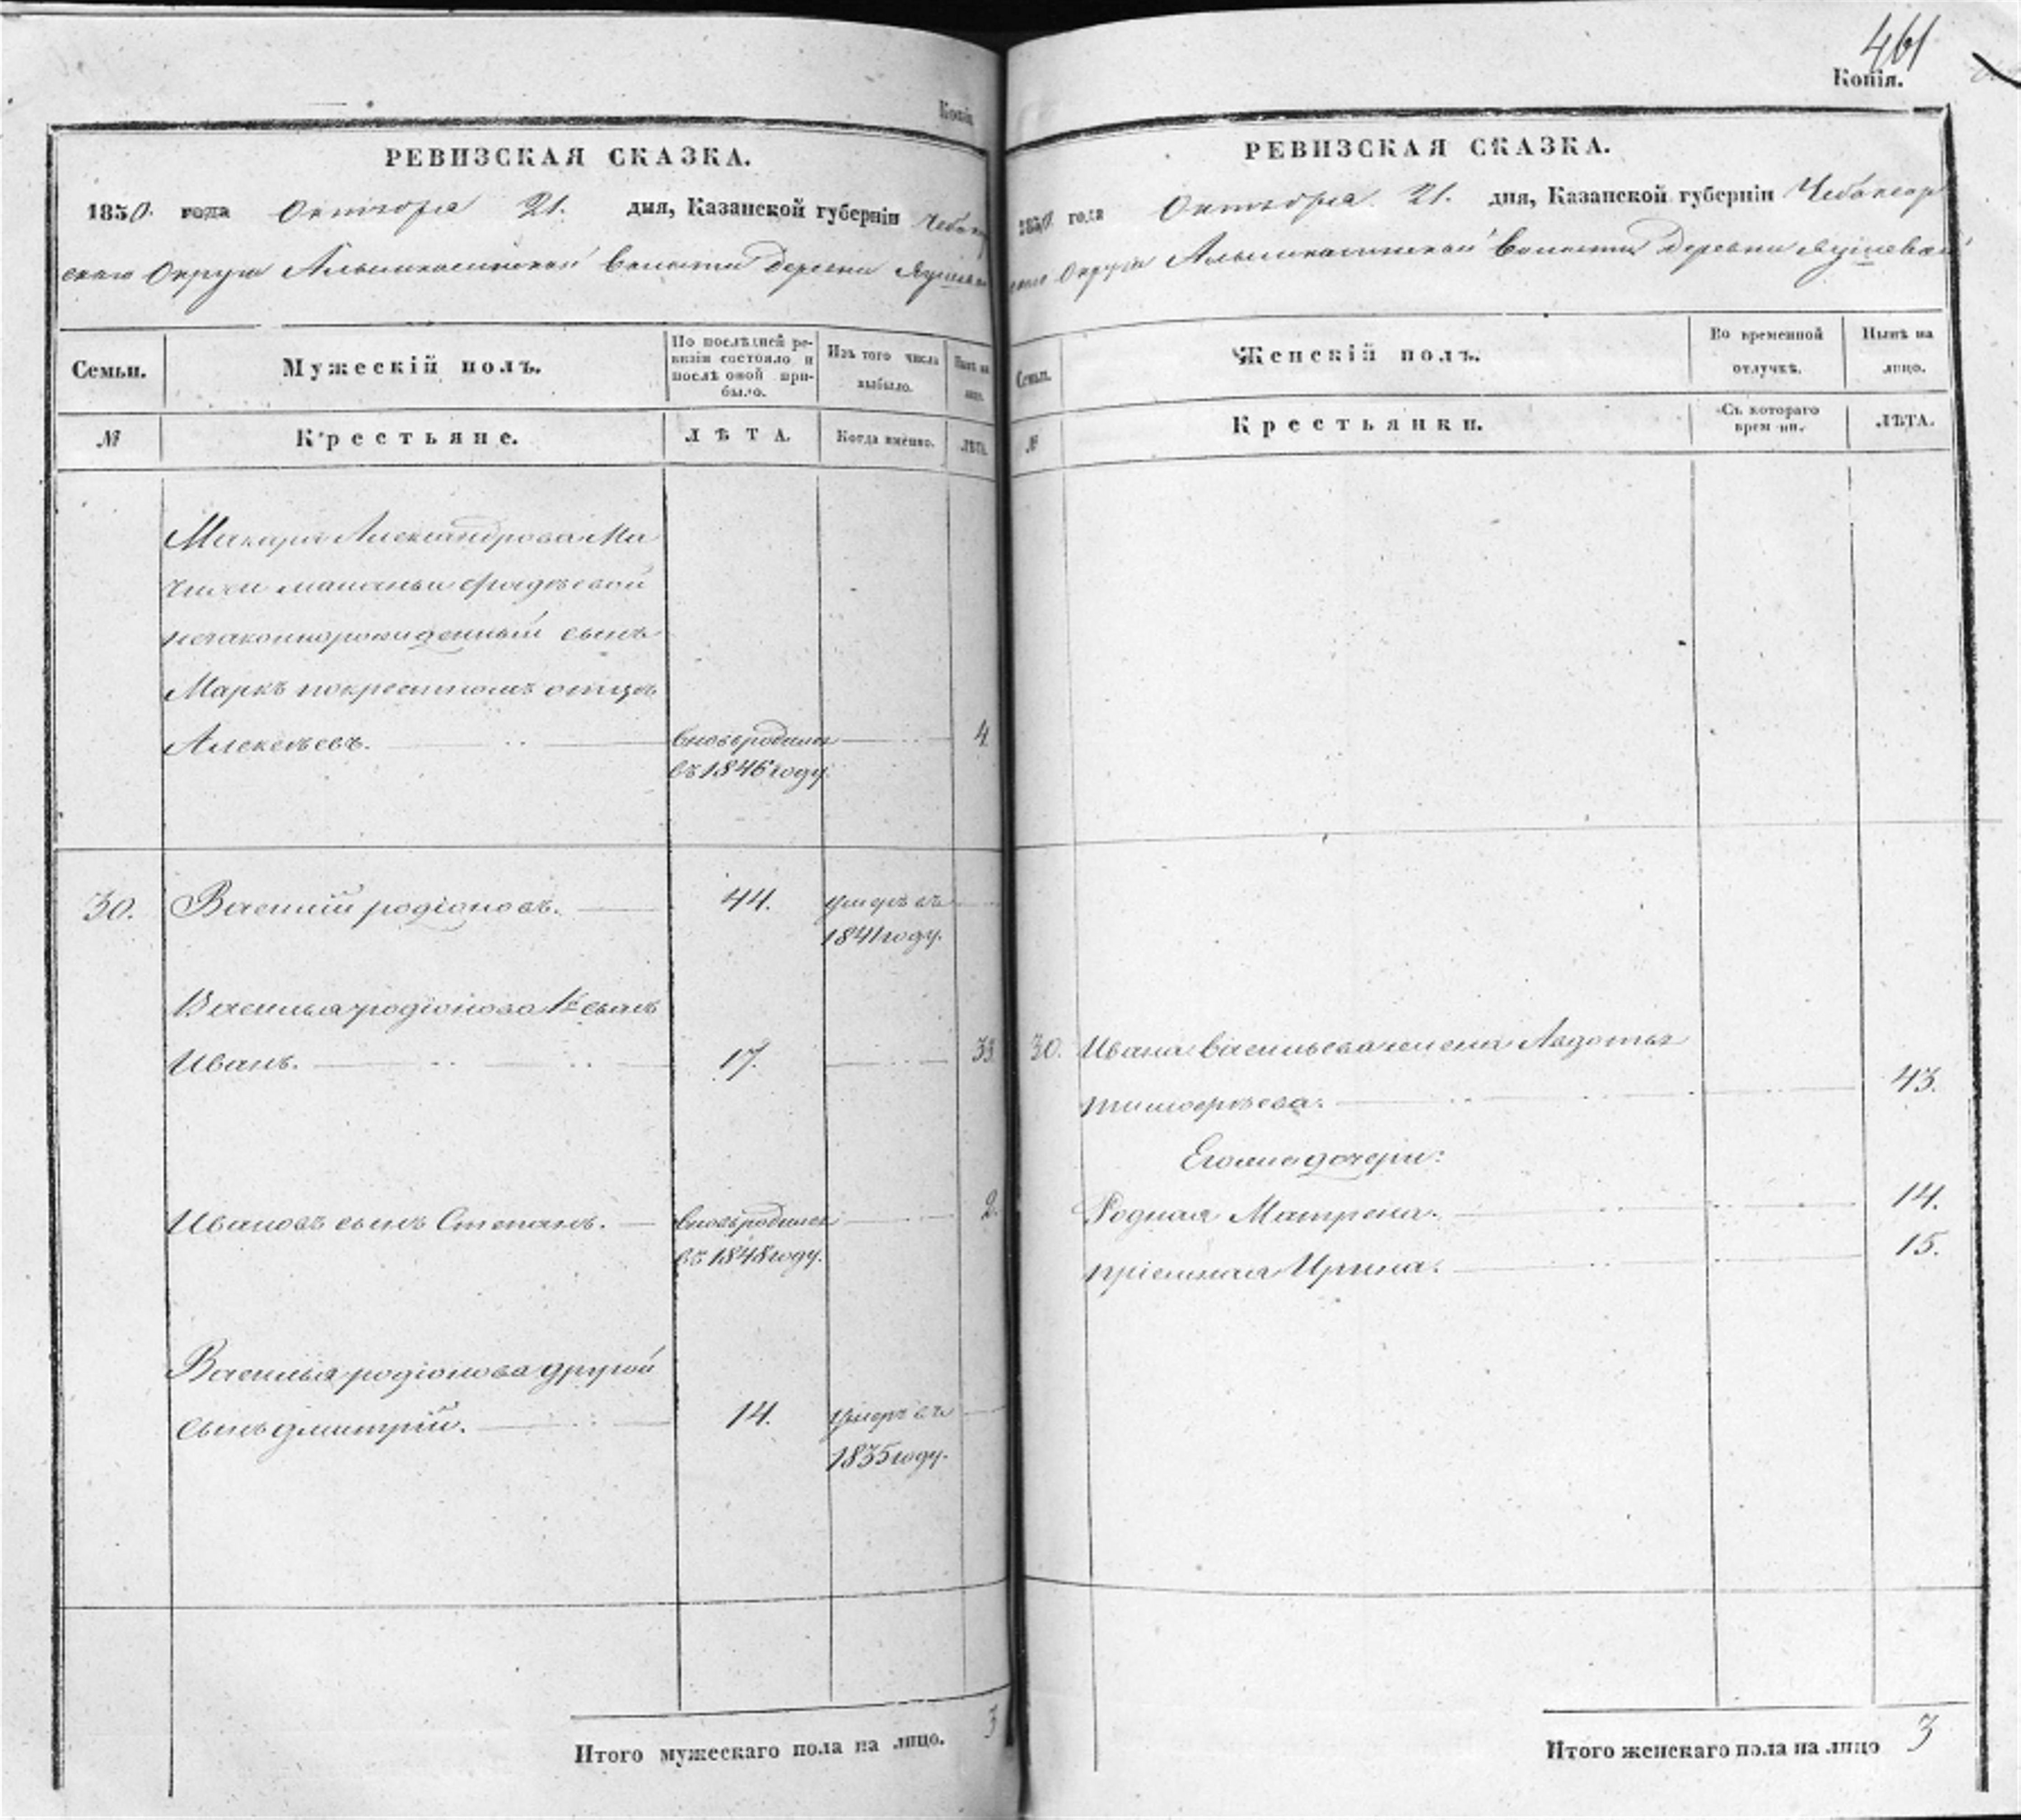 Копія
РЕВИЗСКАЯ СКАЗКА.
1850. года Октября 21. дня, Казанской губерніи Чебокар
скаго Округа Альмикасинской Волости деревни
Семьи.
Мужескій полъ.
По послѣдней ре-
визіи состояло и
послѣ оной при-
было.
Изъ того числа
выбыло.
Нынѣ на
лицо.
№
Крестьяне.
ЛѢТА.
Когда именно.
ЛѢТА.
Александрова
незаконнорожденный сынъ
Маркъ по крестномъ отцѣ
Алексѣевъ.
вновь родился
въ 1846 году.
4
30.
Василий родіоновъ.
44.
умеръ въ
1841 году.
Василья родіонова 1й сынъ
Иванъ.
17.
33
Ивановъ сынъ Степанъ.
вновь родился
въ 1848 году.
2.
Василья родіонова другой
сынъ дмитрій.
14.
умеръ въ
1835 году.
Итого мужескаго пола на лицо.
3
461
Копія.
РЕВИЗСКАЯ СКАЗКА.
1850. года Октября 21. дня, Казанской губерніи Чебоксар
скаго Округа Альмикасинской Волости деревни
Семьи.
Женскій полъ.
Во временной
отлучкѣ.
Нынѣ на
лицо.
№
Крестьянки.
Съ котораго
времени.
ЛѢТА.
30. Ивана васильева жена Авдотья
тимофѣева.
43.
Его же дочери:
Родная Матрена.
14.
пріемная Ирина.
15.
Итого женскаго пола на лицо
3